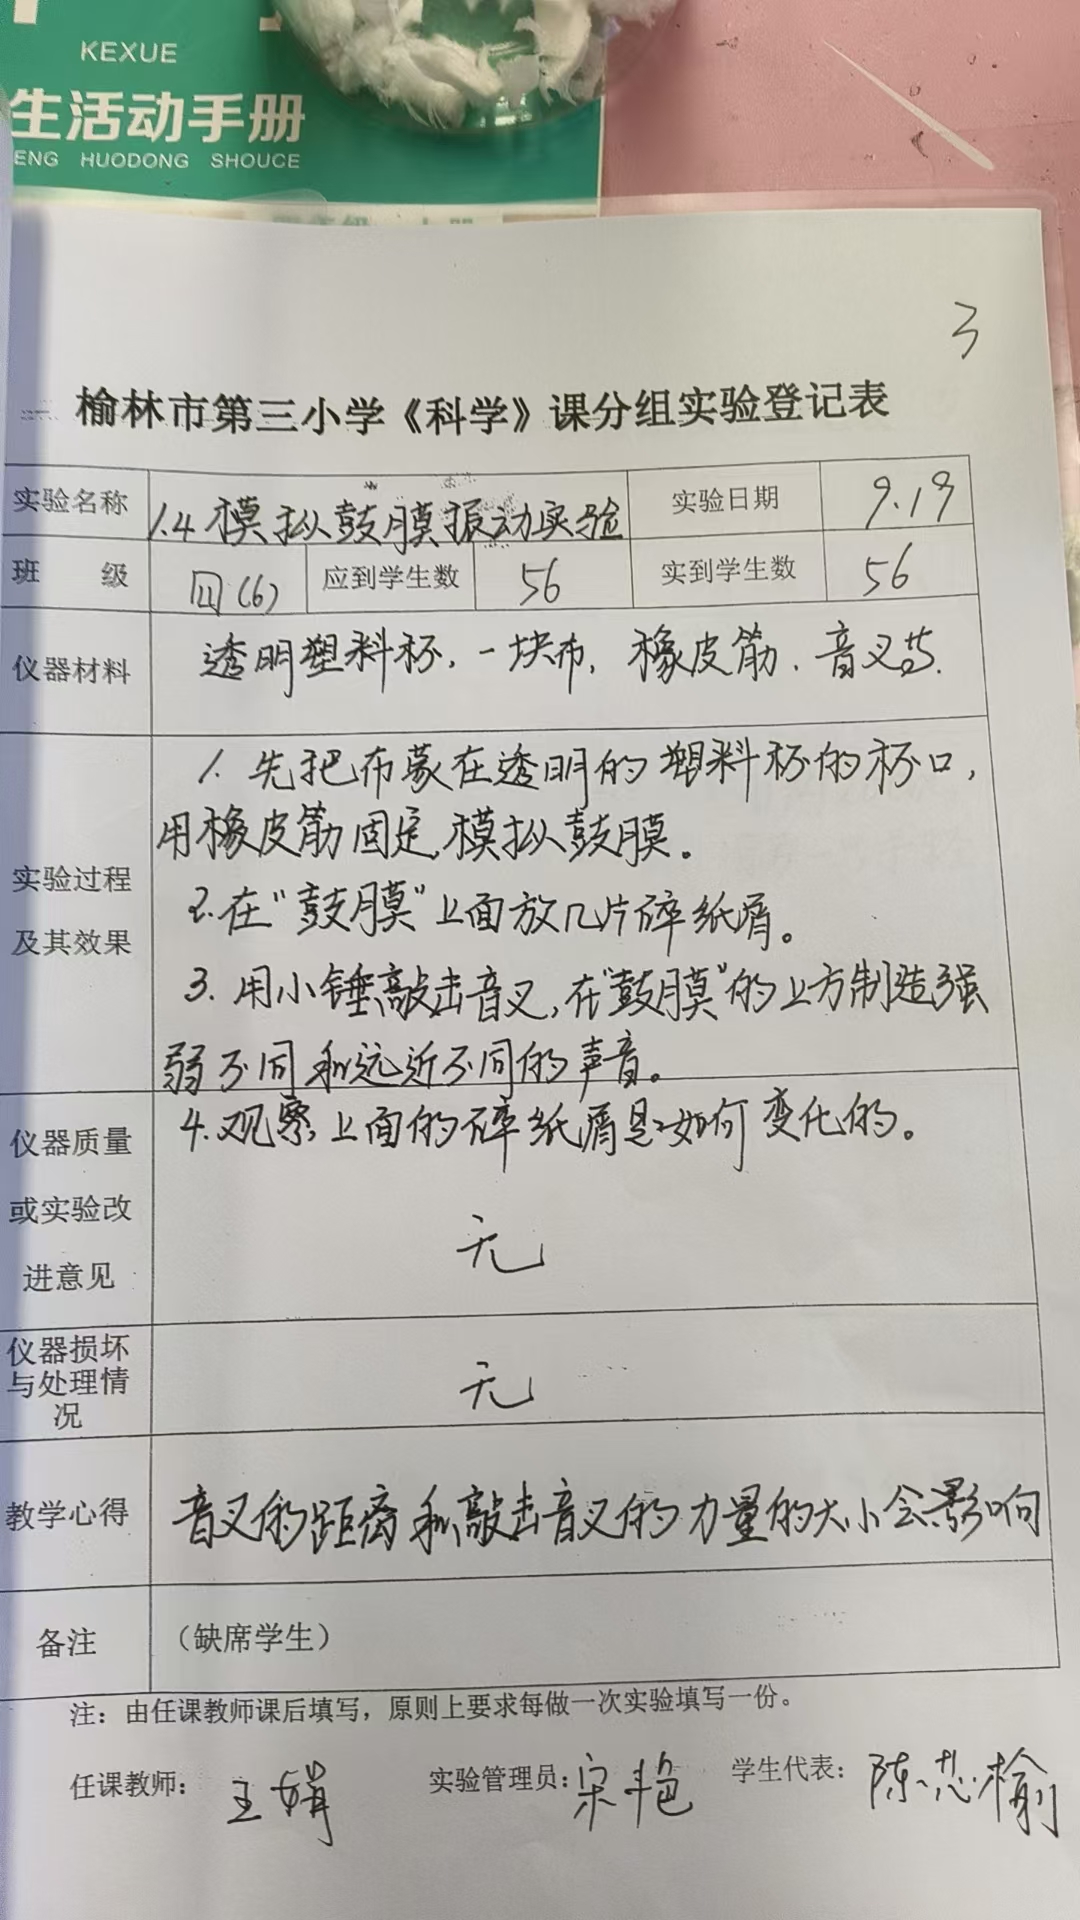 KEXUE
生活动手册
ENG HUODONG SHOUCE
3
榆林市第三小学《科学》课分组实验登记表
实验名称 1.4 模拟鼓膜振动实验 实验日期 9.19
班 级 四(6) 应到学生数 56 实到学生数 56
仪器材料 透明塑料杯、一块布、橡皮筋、音叉等.
实验过程及其效果
1. 先把布蒙在透明的塑料杯的杯口,
用橡皮筋固定,模拟鼓膜。
2.在“鼓膜”上面放几片碎纸屑。
3. 用小锤敲击音叉,在“鼓膜”的上方制造强
弱不同和远近不同的声音。
4.观察上面的碎纸屑是如何变化的。
仪器质量
或实验改
进意见
无
仪器损坏
与处理情
况
无
教学心得 音叉的距离和敲击音叉的力量的大小会影响
备注 （缺席学生）
注：由任课教师课后填写，原则上要求每做一次实验填写一份。
任课教师: 王娟 实验管理员: 宋艳 学生代表: